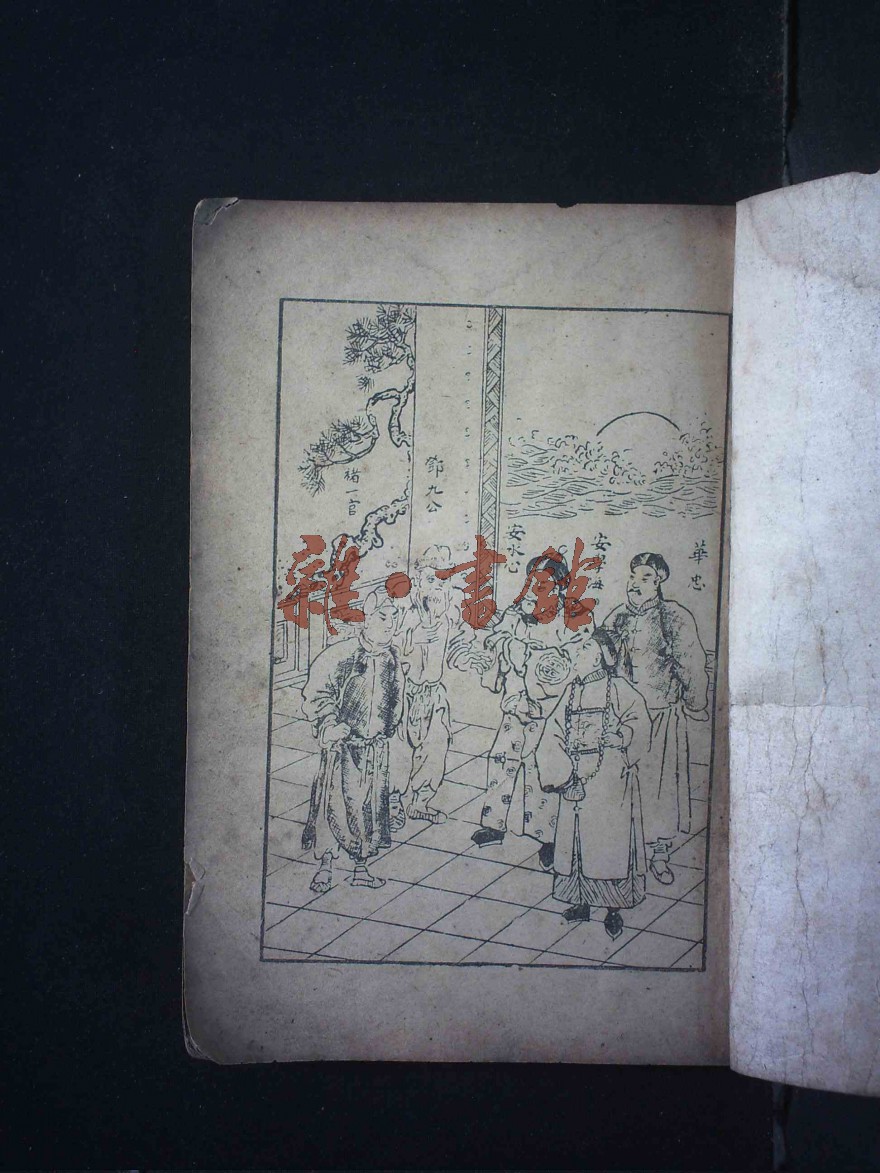 華忠
安水心
鄧九公
褚一官
雜·書館